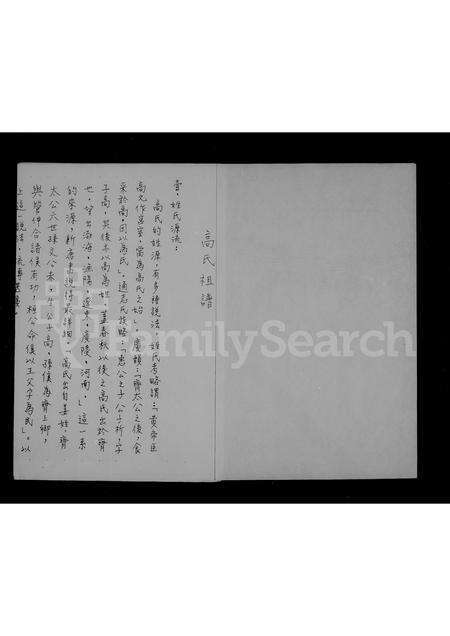 高氏祖譜
壹、姓氏源流：
高氏的姓源，有多種說法，姓氏考略謂：「黃帝臣
高元作宮室，當為高氏之始」。廣韻：「齊太公之後，食
采於高，因以為氏」。通志氏族略：「惠公之子公子祈，字
子高，其後亦以高為姓。蓋春秋以後之高氏出於齊
也，望出渤海，漁陽，遼東，廣陵，河南。」這一系
的來源，新唐書說得最詳細，高氏出自姜姓，齊
太公六世孫文公赤，生公子高，孫傒為齊上卿，
與管仲合諸侯有功，桓公命傒以王父字為氏」。以
上這一說法，流傳
FamilySearch